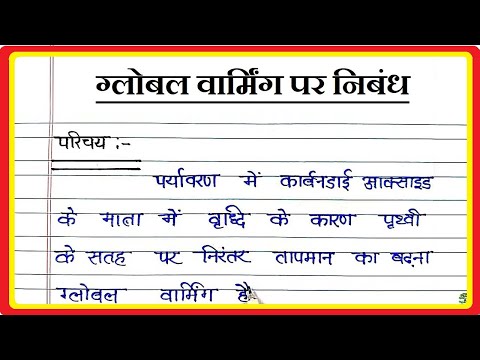 ग्लोबल वार्मिंग पर निबंध
परिचय :-
पर्यावरण में कार्बनडाई आक्साइड
के माता में वृध्दि के कारण पृथ्वी
के सतह पर निरंतर तापमान का बढ़ना
ग्लोबल वार्मिंग है